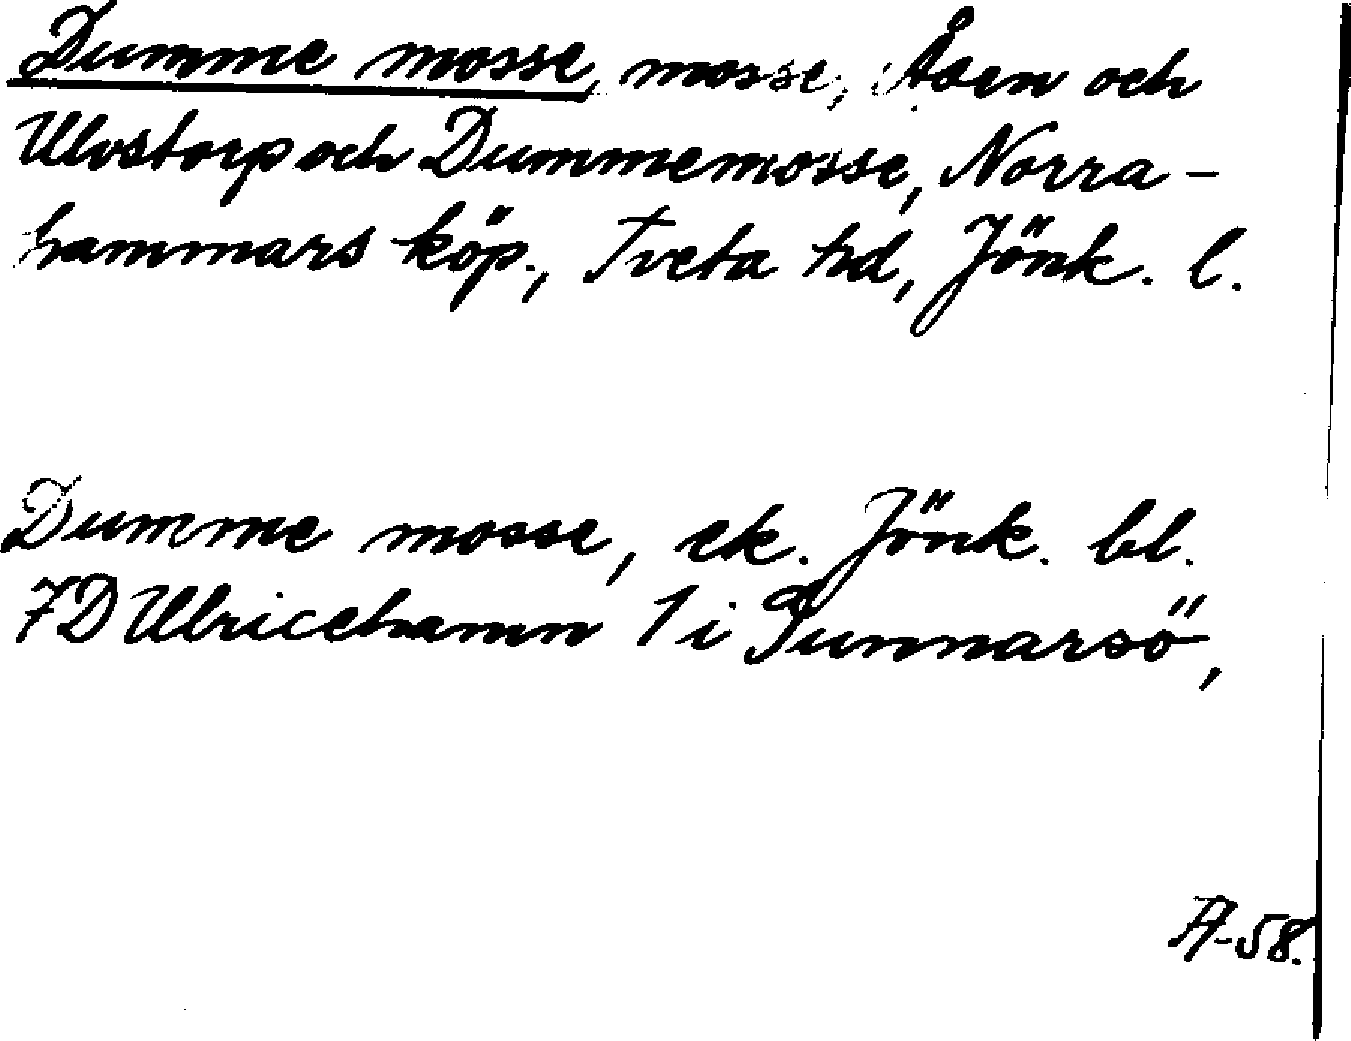 Dumme mosse, mosse, Åsen och
Ulvstorp och Dummemosse, Norra-
hammars köp., Tveta hd, Jönk. l.
Dumme mosse, ek. Jönk. bl.
7D Ulricehamn 1 i Gunnarsö,
A-58.